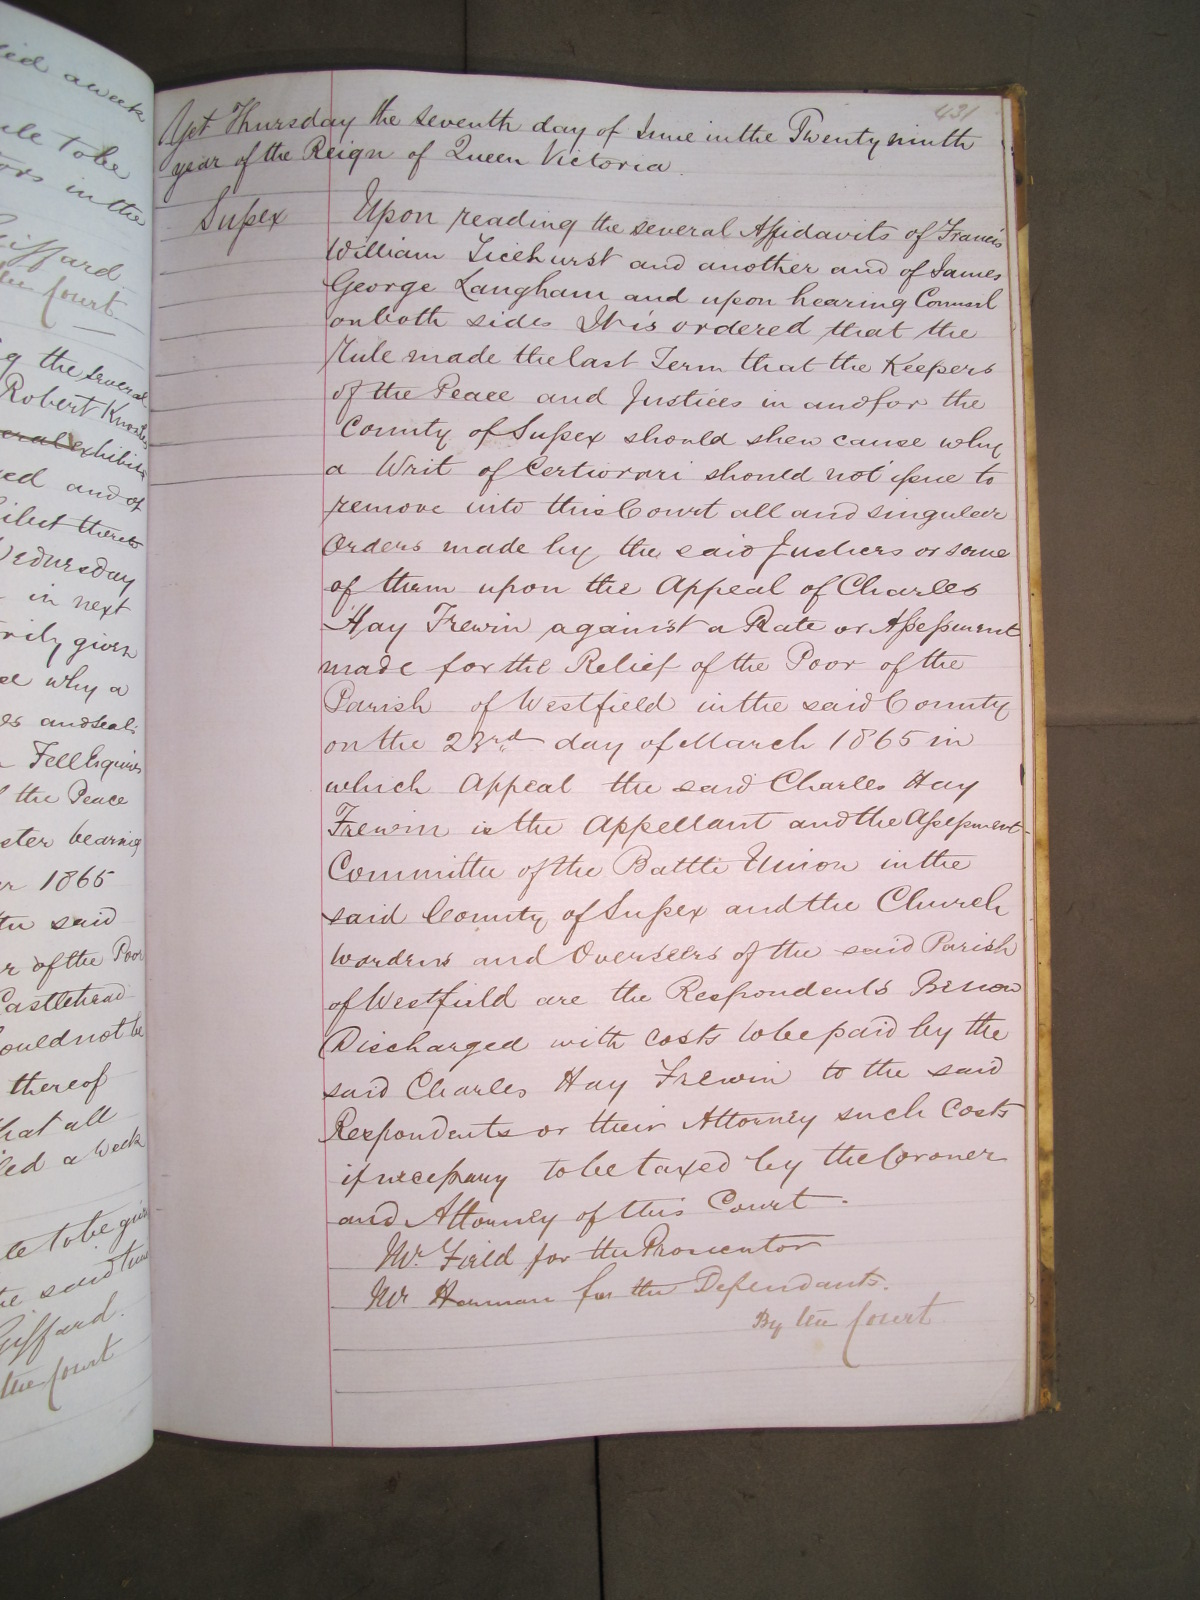 ied a week
ule to be
tors in the
Giffard
the Court
g the several
Robert Knowles
exhibits
ed and of
hibit thereto
Wednesday
in next
rily given
se why a
ds and seals
Fell Esquires
f the Peace
ster bearing
er 1865
the said
r of the Poor
Castlehead
ould not be
thereof
hat all
led a week
le to be given
he said
Giffard.
the Court
431
Yet Thursday the Seventh day of June in the Twenty ninth
year of the Reign of Queen Victoria.
Sussex
Upon reading the several Affidavits of Francis
William Ticehurst and another and of James
George Langham and upon hearing Counsel
on both sides It is ordered that the
Rule made the last Term that the Keepers
of the Peace and Justices in and for the
County of Sussex should shew cause why
a Writ of Certiorari should not issue to
remove into this Court all and singular
Orders made by the said Justices or some
of them upon the Appeal of Charles
Hay Frewin against a Rate or Assessment
made for the Relief of the Poor of the
Parish of Westfield in the said County
on the 23rd day of March 1865 in
which Appeal the said Charles Hay
Frewin is the Appellant and the Assessment
Committee of the Battle Union in the
said County of Sussex and the Church
wardens and Overseers of the said Parish
of Westfield are the Respondents Be now
Discharged with costs to be paid by the
said Charles Hay Frewin to the said
Respondents or their Attorney such Costs
if necessary to be taxed by the Coroner
and Attorney of this Court.
Mr. Field for the Prosecutor
Mr Harman for the Defendants.
By the Court